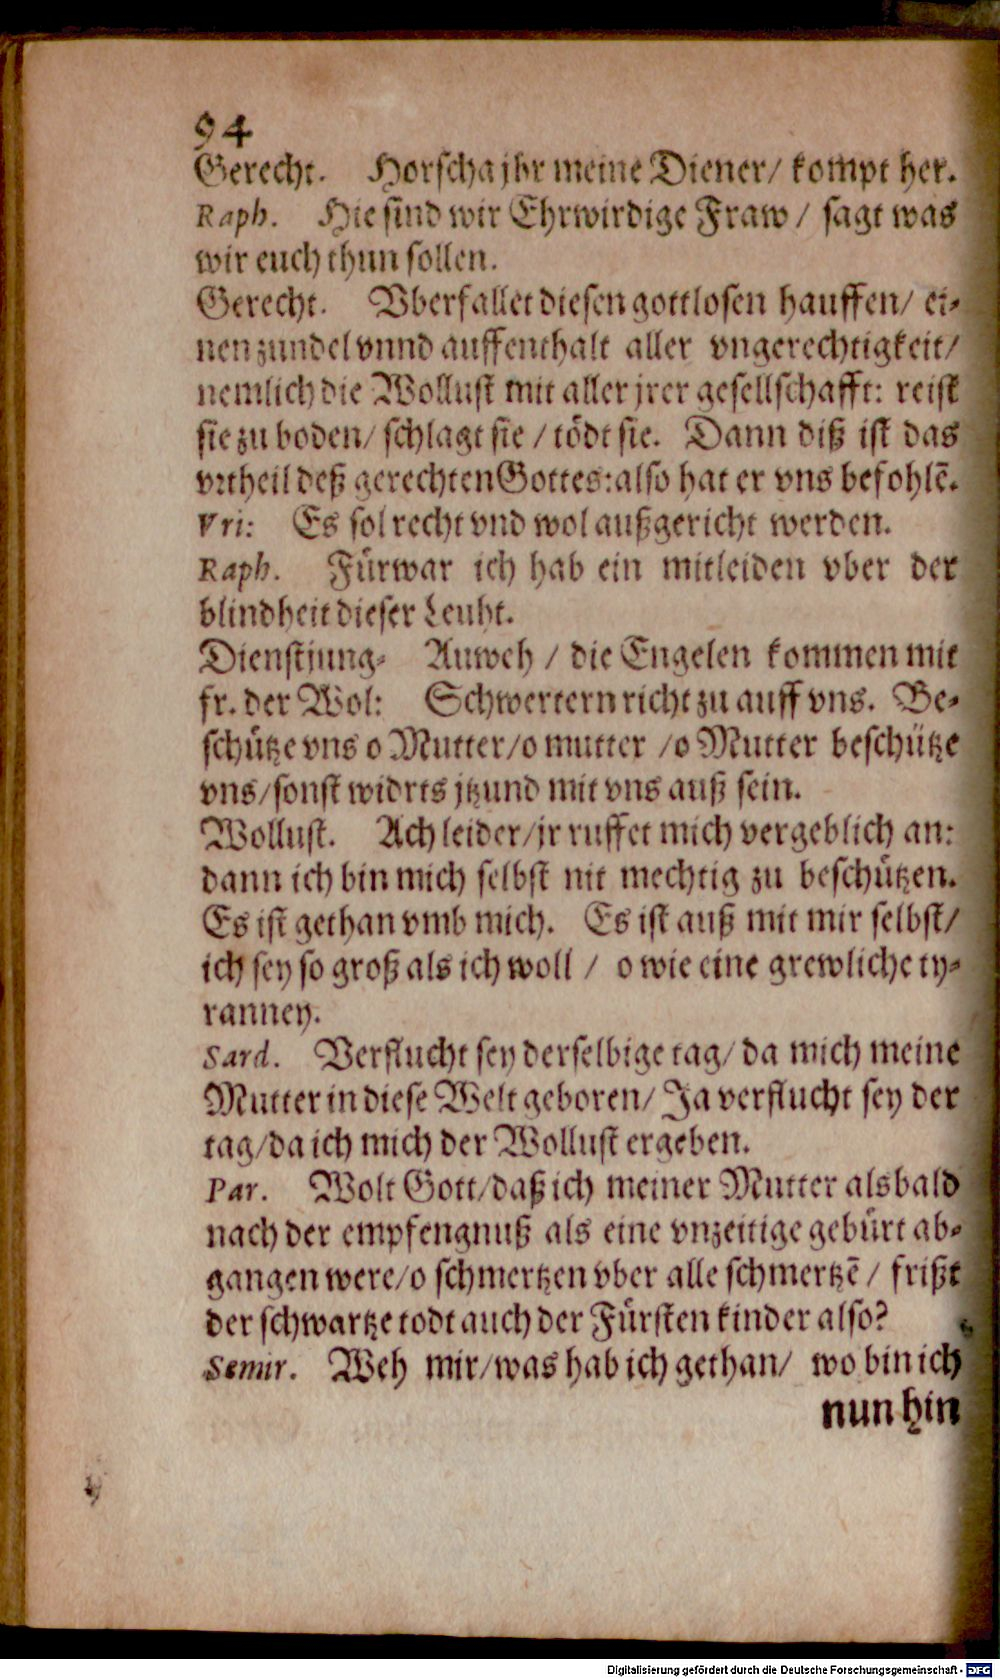 94
Gerecht. Horscha jhr meine Diener/ kompt her.
Raph. Hie sind wir Ehrwirdige Fraw / sagt was
wir euch thun sollen.
Gerecht. Vberfallet diesen gottlosen hauffen/ ei-
nen zundel vnnd auffenthalt aller vngerechtigkeit/
nemlich die Wollust mit aller jrer gesellschafft: reist
sie zu boden/ schlagt sie / tödt sie. Dann diß ist das
vrtheil deß gerechten Gottes: also hat er vns befohlē.
Vri: Es sol recht vnd wol außgericht werden.
Raph. Fürwar ich hab ein mitleiden vber der
blindheit dieser Leuht.
Dienstjung- Auweh / die Engelen kommen mit
fr. der Wol: Schwertern richt zu auff vns. Be-
schütze vns o Mutter/o mutter /o Mutter beschütze
vns/sonst widrts jtzund mit vns auß sein.
Wollust. Ach leider/jr ruffet mich vergeblich an:
dann ich bin mich selbst nit mechtig zu beschützen.
Es ist gethan vmb mich. Es ist auß mit mir selbst/
ich sey so groß als ich woll / o wie eine grewliche ty-
ranney.
Sard. Verflucht sey derselbige tag/ da mich meine
Mutter in diese Welt geboren/ Ja verflucht sey der
tag/da ich mich der Wollust ergeben.
Par. Wolt Gott/daß ich meiner Mutter alsbald
nach der empfengnuß als eine vnzeitige gebürt ab-
gangen were/o schmertzen vber alle schmertzē / frißt
der schwartze todt auch der Fürsten kinder also?
Semir. Weh mir/was hab ich gethan/ wo bin ich
nun hin
Digitalisierung gefördert durch die Deutsche Forschungsgemeinschaft - DFG